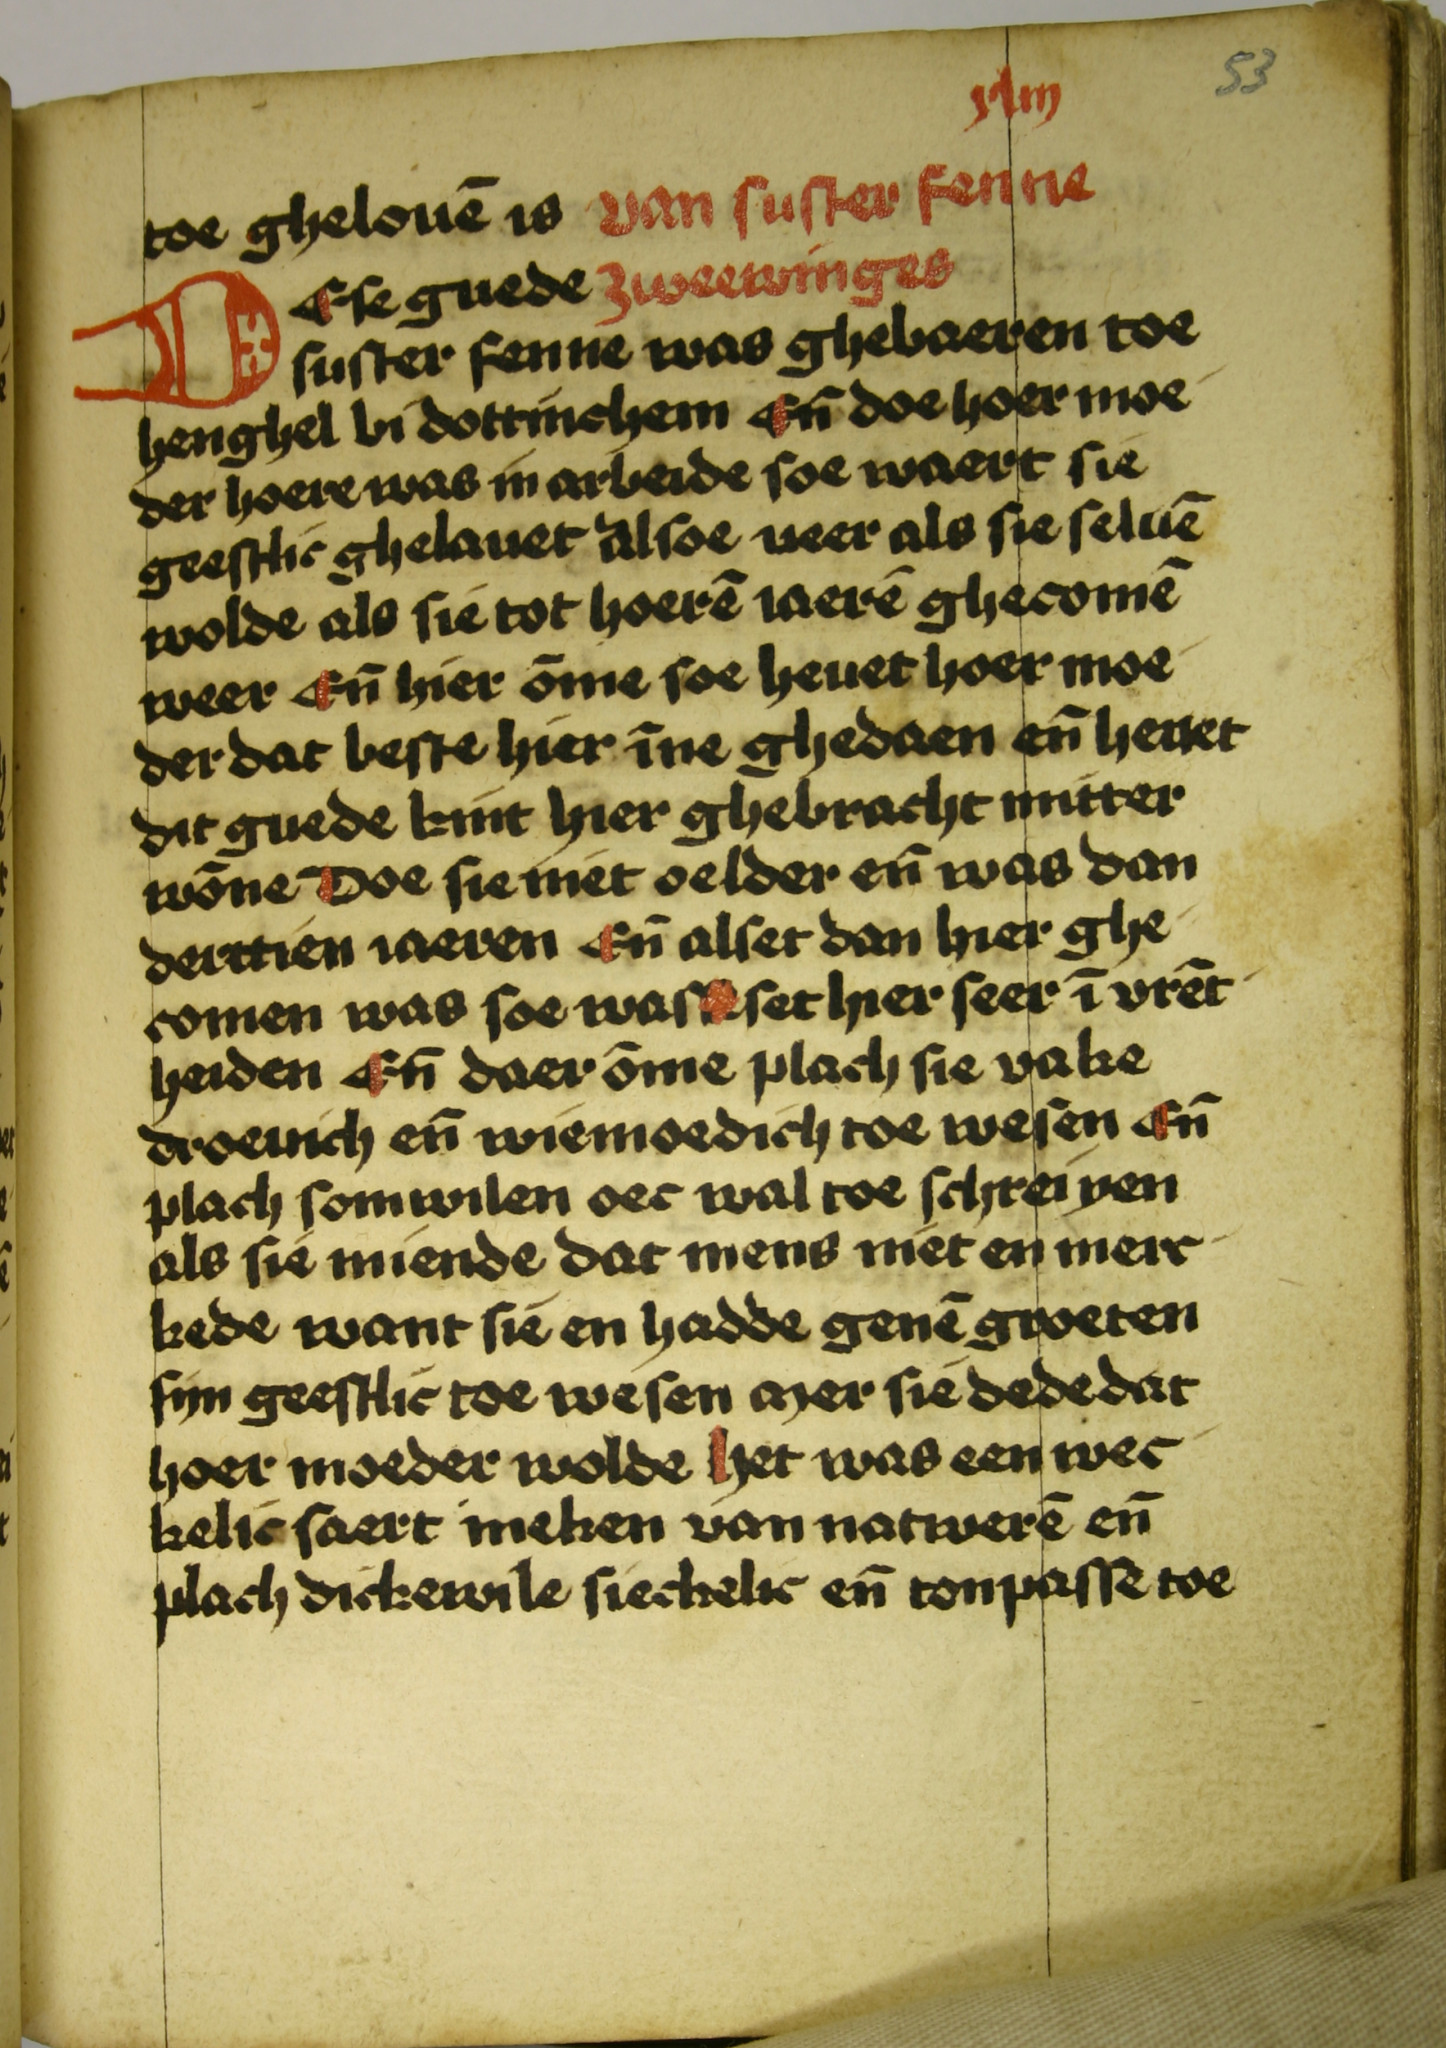 53
xlm
toe ghelouē is van suster fenne
DEse guede zweewinges
suster fenne was ghebaeren toe
henghel bi dottinchem En̄ doe hoer moe
der hoere was in arbeide soe waert sie
geestlic ghelauet alsoe veer als sie seluē
wolde als sie tot hoerē iaerē ghecomē
weer En̄ hier ōme soe heuet hoer moe
der dat beste hier īne ghedaen en̄ heuet
dit guede kint hier ghebracht mitter
wōne Doe sie niet oelder en̄ was dan
derttien iaeren En̄ alset dan hier ghe
comen was soe was set hier seer ī vrēt
heiden En̄ daer ōme plach sie vake
droeuich en̄ wiemoedich toe wesen En̄
plach somwilen oec wal toe schreiyen
als sie miende dat mens niet en merc
kede want sie en hadde genē groeten
sijn geestlic toe wesen mer sie dede dat
hoer moeder wolde het was een wec
kelic saert meken van natwerē en̄
plach dickewile sieckelic en̄ tonpasse toe